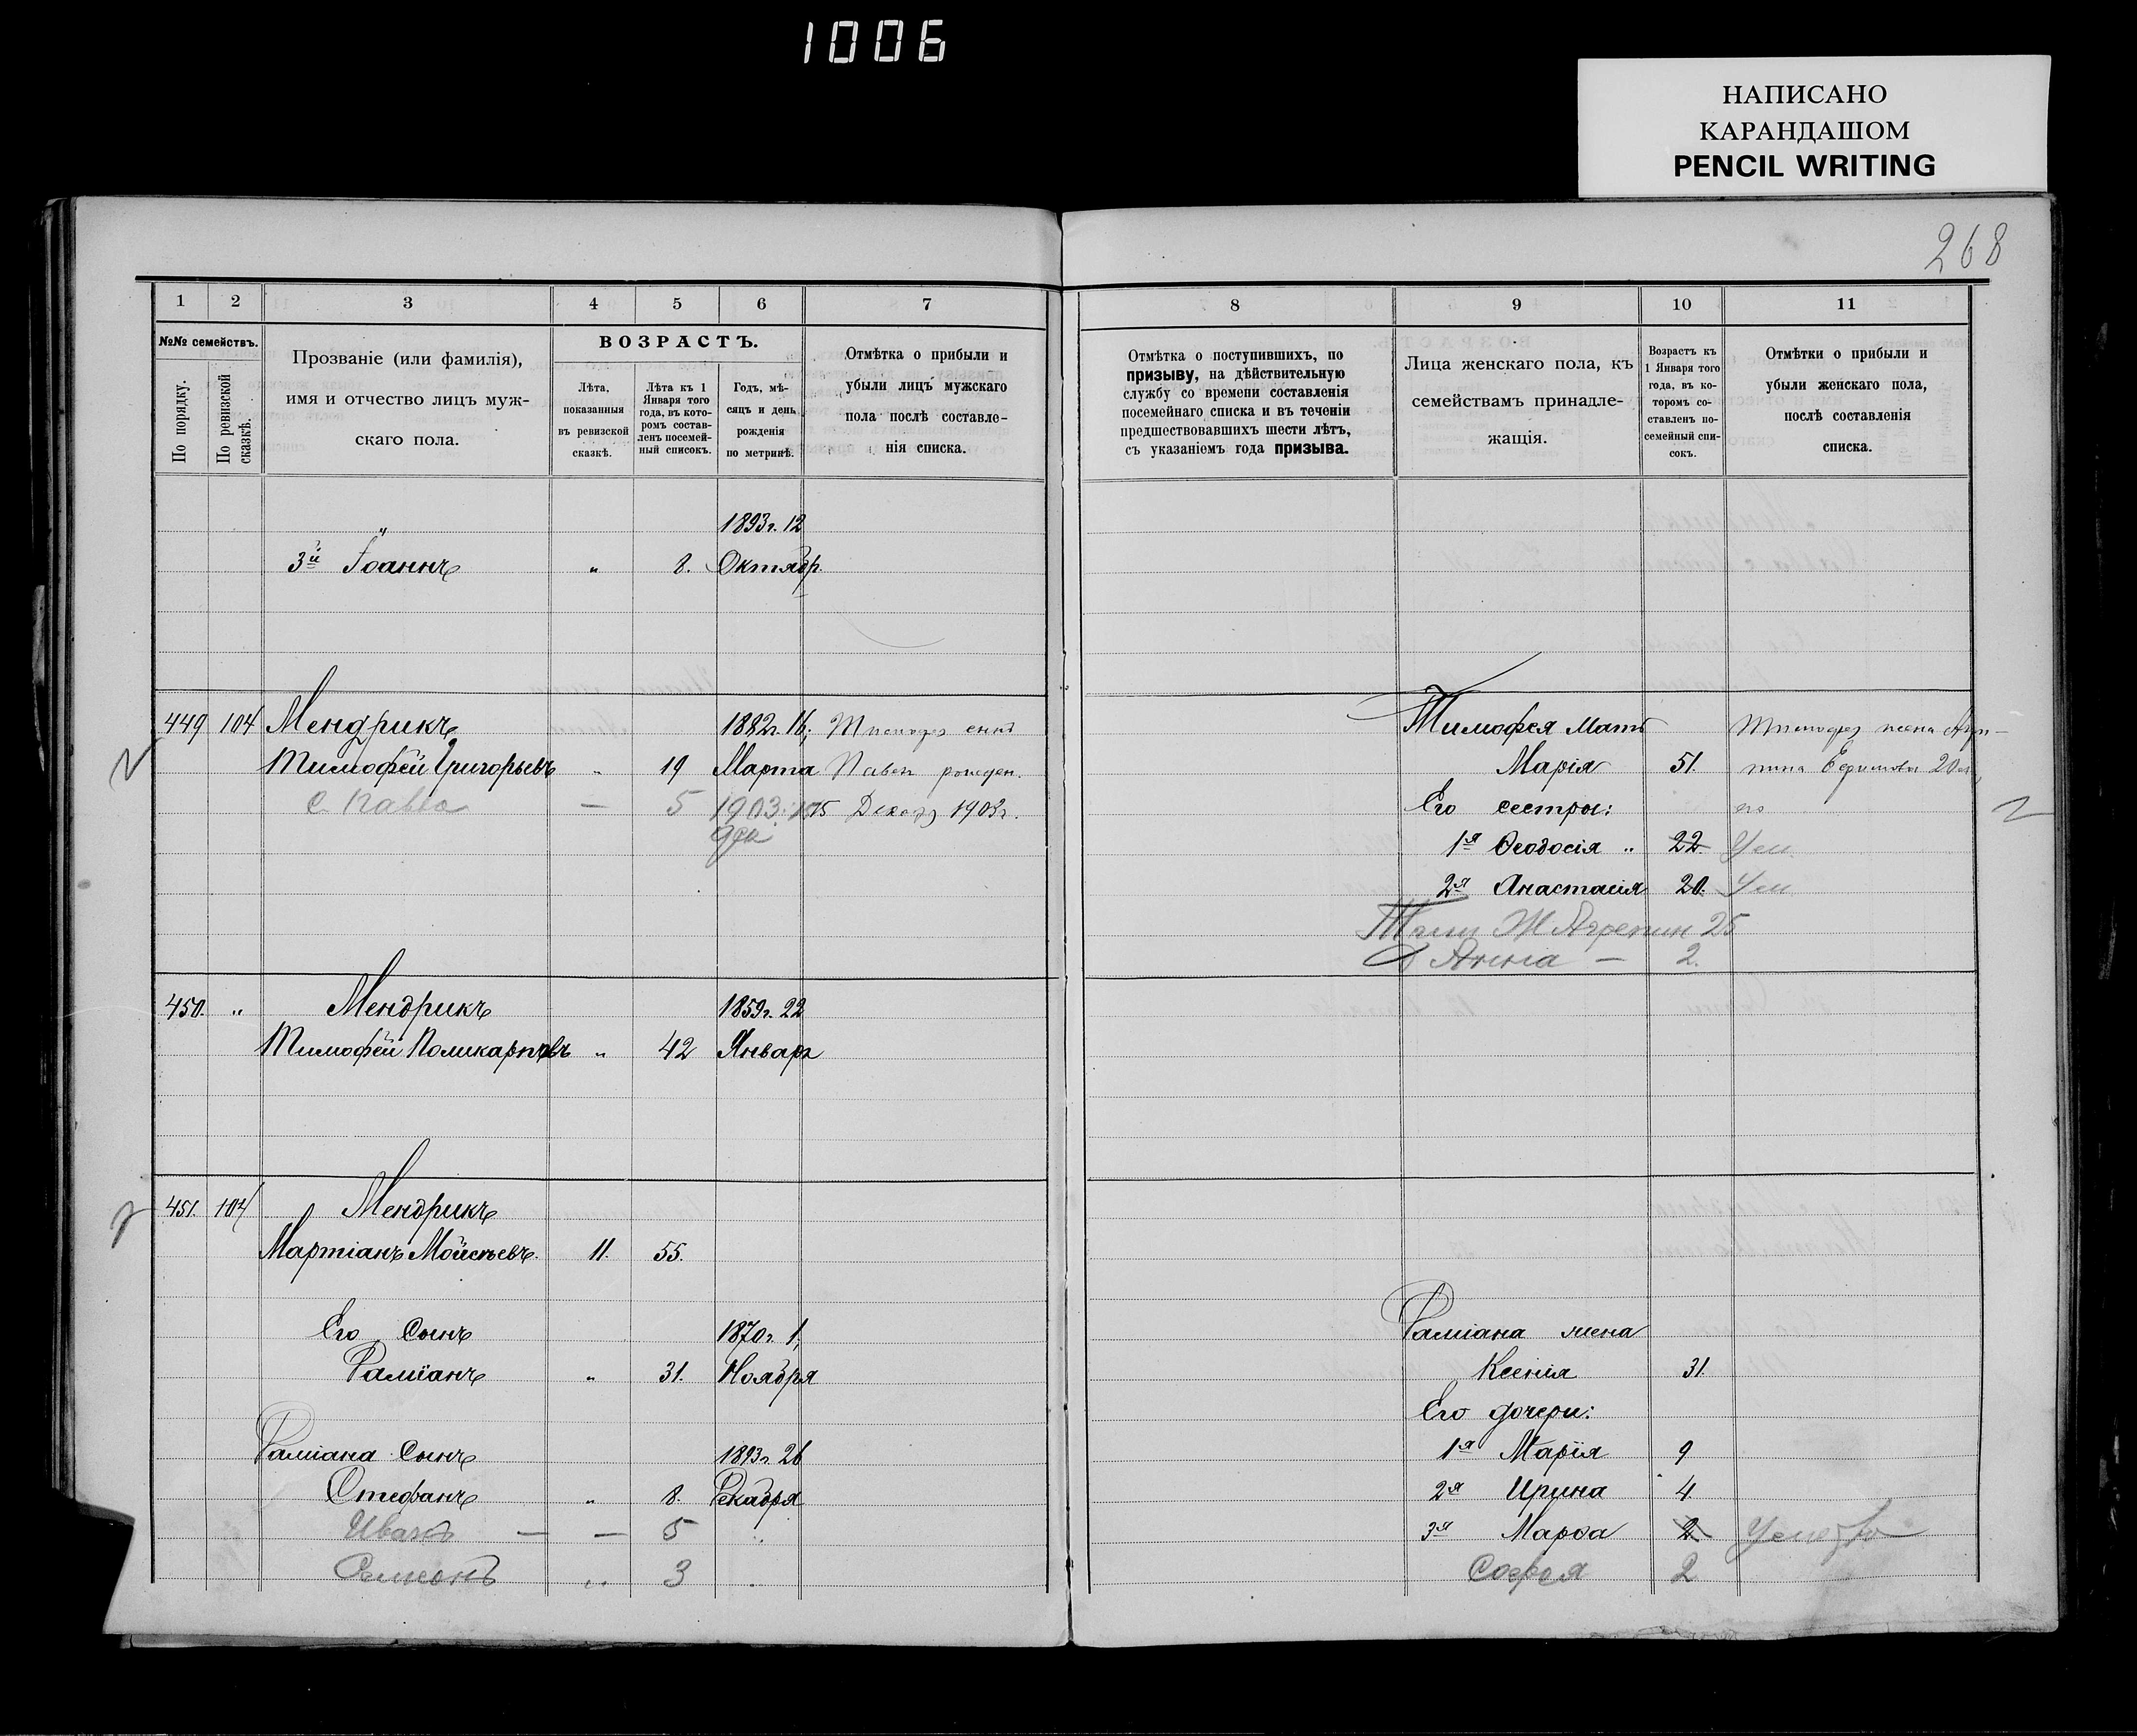 1006
НАПИСАНО
КАРАНДАШОМ
PENCIL WRITING
268
1 2 3 4 5 6 7
№№ семействъ.
По порядку.
По ревизской сказкѣ.
Прозваніе (или фамилія),
имя и отчество лицъ муж-
скаго пола.
ВОЗРАСТЪ.
Лѣта,
показанныя
въ ревизской
сказкѣ.
Лѣта къ 1
Января того
года, въ кото-
ромъ состав-
ленъ посемей-
ный списокъ.
Годъ, мѣ-
сяцъ и день
рожденія
по метрикѣ.
Отмѣтка о прибыли и
убыли лицъ мужскаго
пола послѣ составле-
нія списка.
8 9 10 11
Отмѣтка о поступившихъ, по
призыву, на дѣйствительную
службу со времени составленія
посемейнаго списка и въ теченіи
предшествовавшихъ шести лѣтъ,
съ указаніемъ года призыва.
Лица женскаго пола, къ
семействамъ принадле-
жащія.
Возрастъ къ
1 Января того
года, въ ко-
торомъ со-
ставленъ по-
семейный спи-
сокъ.
Отмѣтки о прибыли и
убыли женскаго пола,
послѣ составленія
списка.
" 1893г. 12
3й Іоаннъ " 8. Октябр.
449 104 Мендрикъ 1882г. 16,
Тимофей Григорьевъ " 19 Марта Павел рожден.
С. Павло — 5 1903. 15 Декаб 1903г.
Тимофея мать
Марія 51. Ефимова 20
Его сестры:
1я Ѳеодосія " 22 Ум
2я Анастасія 20. Ум
Ж Агрепин 25
Д Анна — 2.
450. " Мендрикъ 1859г. 22
Тимофей Поликарповъ " 42 Январ
451. 104 Мендрикъ
Мартіанъ Мойсѣевъ. 11. 55.
Его Сынъ 1870г. 1,
Даміанъ " 31. Ноября
Даміана Сынъ 1893г. 26
Стефанъ " 8. Декабря
Иванъ — — 5 "
Семенъ " 3 "
Даміана жена
Ксенія 31.
Его дочери:
1я Марія 9
2я Ирина 4
3я Марѳа 2
Софея 2